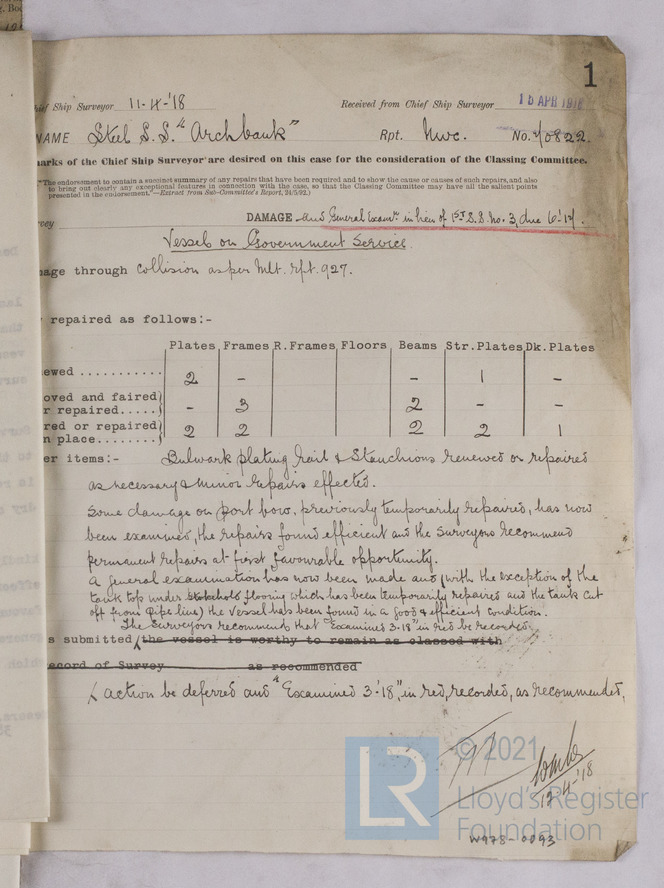 1
hief Ship Surveyor 11-4-'18 Received from Chief Ship Surveyor 15 APR 1918
NAME Steel S.S. "Archbank" Rpt. Nwc. No. 70822.
marks of the Chief Ship Surveyor are desired on this case for the consideration of the Classing Committee.
"The endorsement to contain a succinct summary of any repairs that have been required and to show the cause or causes of such repairs, and also
to bring out clearly any exceptional features in connection with the case, so that the Classing Committee may have all the salient points
presented in the endorsement."—Extract from Sub-Committee's Report, 24/5/92.)
vey DAMAGE and General Examn. in lieu of 1st S.S. No. 3, due 6.'17.
Vessel on Government Service.
age through collision as per Mlt. rpt. 927.
repaired as follows:-
Plates Frames R.Frames Floors Beams Str.Plates Dk.Plates
ewed ........... 2 - - 1 -
oved and faired)
r repaired.....) - 3 2 - -
red or repaired)
n place........) 2 2 2 2 1
er items:- Bulwark plating rail & Stanchions renewed or repaired
as necessary & minor repairs effected.
Some damage on port bow, previously temporarily repaired, has now
been examined, the repairs found efficient and the Surveyors recommend
permanent repairs at first favourable opportunity.
A general examination has now been made and (with the exception of the
tank top under stokehold flooring which has been temporarily repaired and the tank cut
off from pipe line) the vessel has been found in a good & efficient condition.
The Surveyors recommend that "Examined 3-18" in red be recorded.
s submitted the vessel is worthy to remain as classed with
ecord of Survey as recommended
action be deferred and "Examined 3-'18", in red, recorded, as recommended.
12-4-'18
© 2021
LR
Lloyd's Register
Foundation
W978-0093